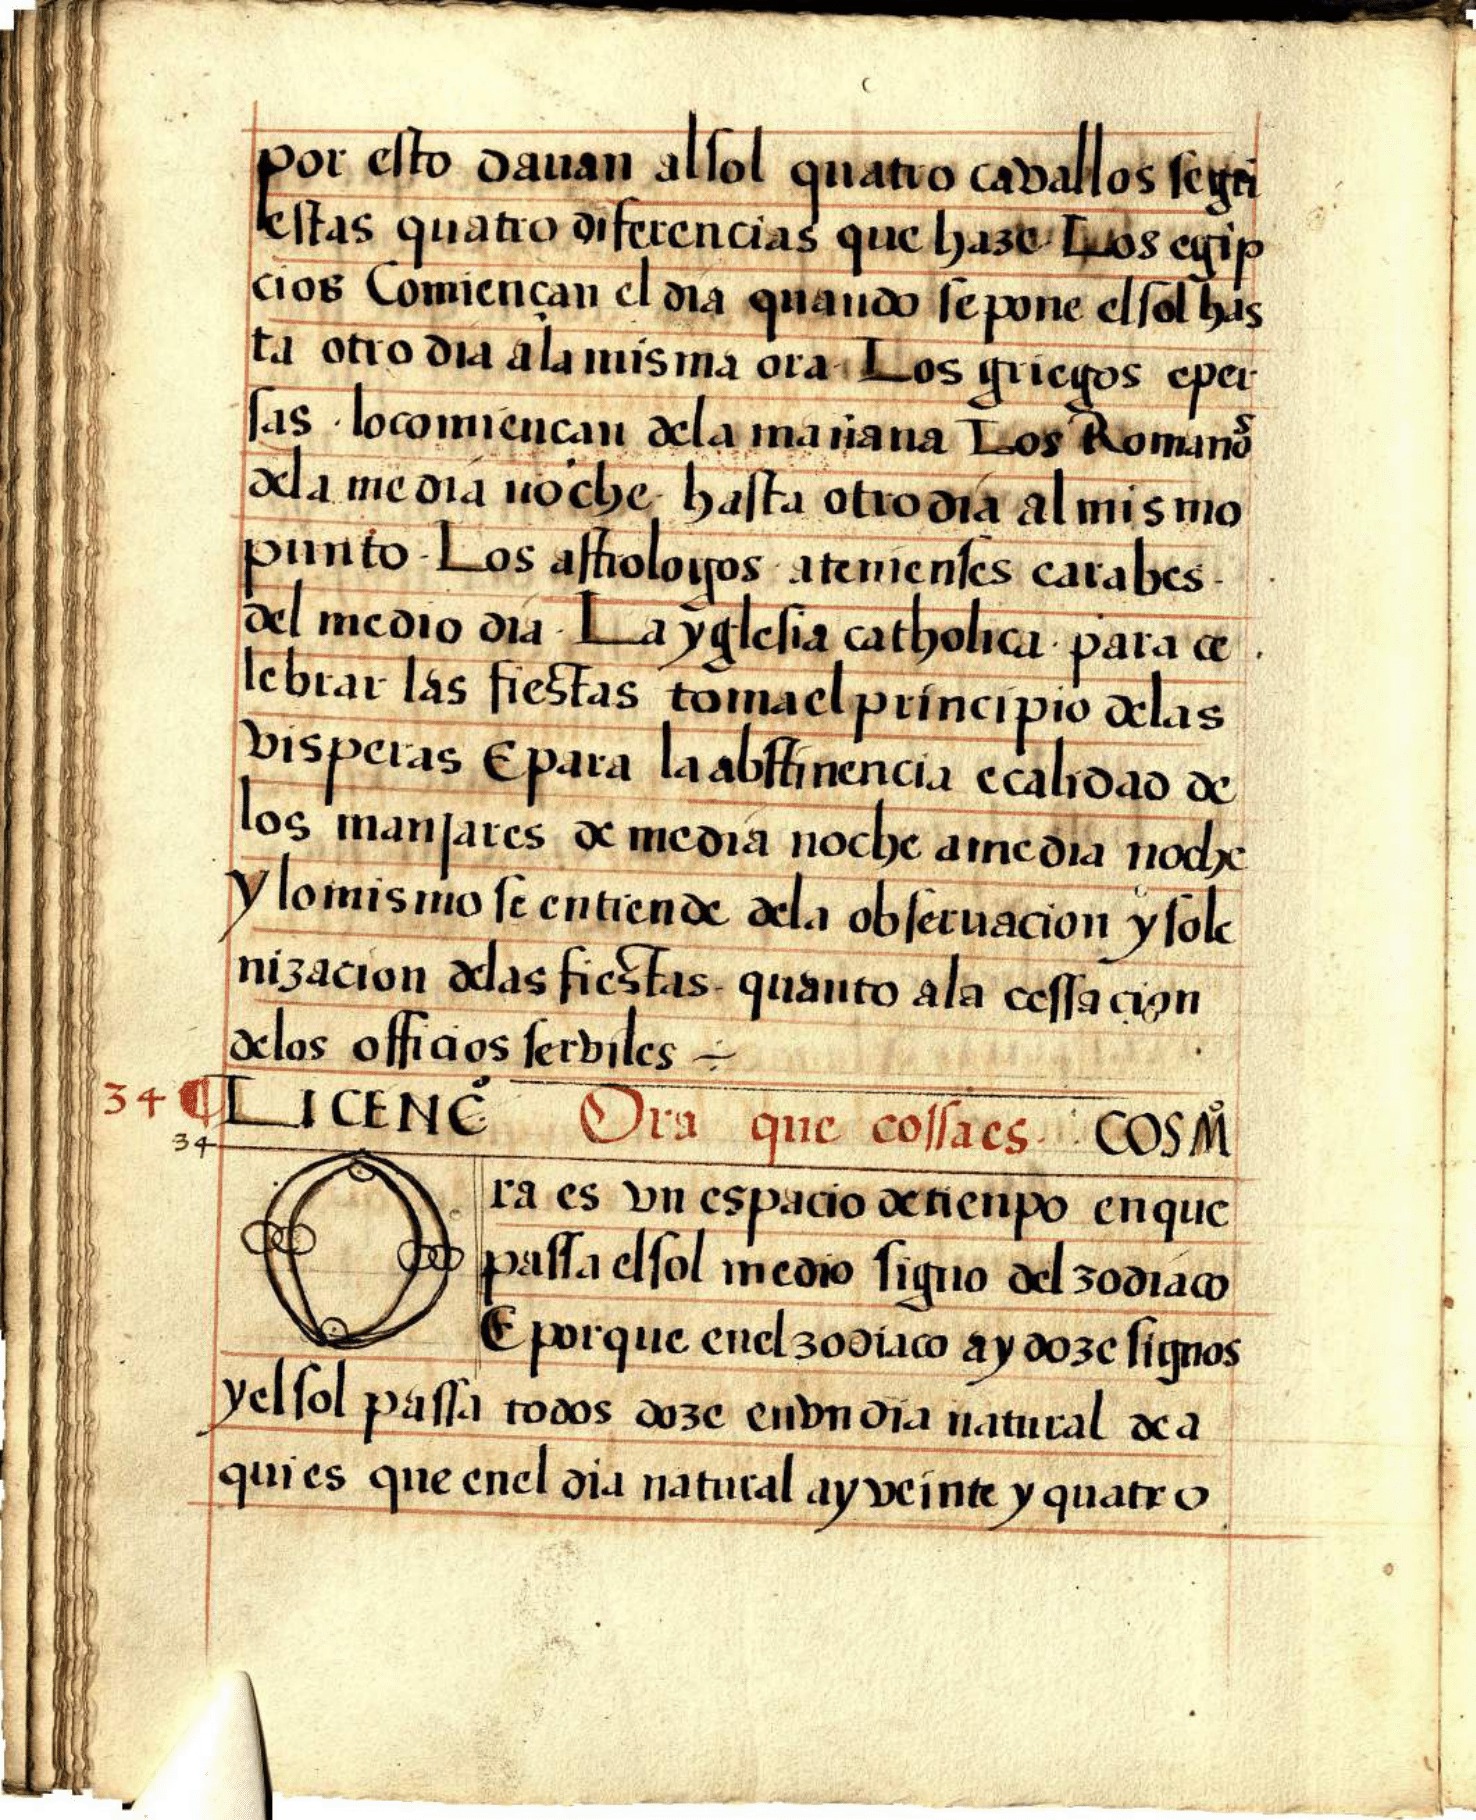 por esto dauan alsol quatro cavallos segũ
estas quatro diferencias que haze Los egip
cios Comiençan el dia quando sepone elsol has
ta otro dia ala misma ora Los griegos e per
sas · locomiençan dela mañana Los Romanoˢ
dela media noche hasta otro dia al mismo
punto · Los astrologos atenienses e arabes ·
del medio dia · La yglesia catholica · para ce
lebrar las fiestas toma el principio delas
visperas E para la abstinencia e calidad de
los manjares de media noche a media noche
y lo mismo se entiende dela obseruacion y sole
nizacion delas fiestas · quanto ala cessacion
delos officios serviles ÷
34 ¶ LICENCᵒ Ora que cossa es · COSMᵒ
34
Ora es vn espacio de tienpo en que
passa elsol medio signo del zodiaco
E porque enel zodiaco ay doze signos
y elsol passa todos doze en vn dia natural de a
qui es que enel dia natural ay veinte y quatro